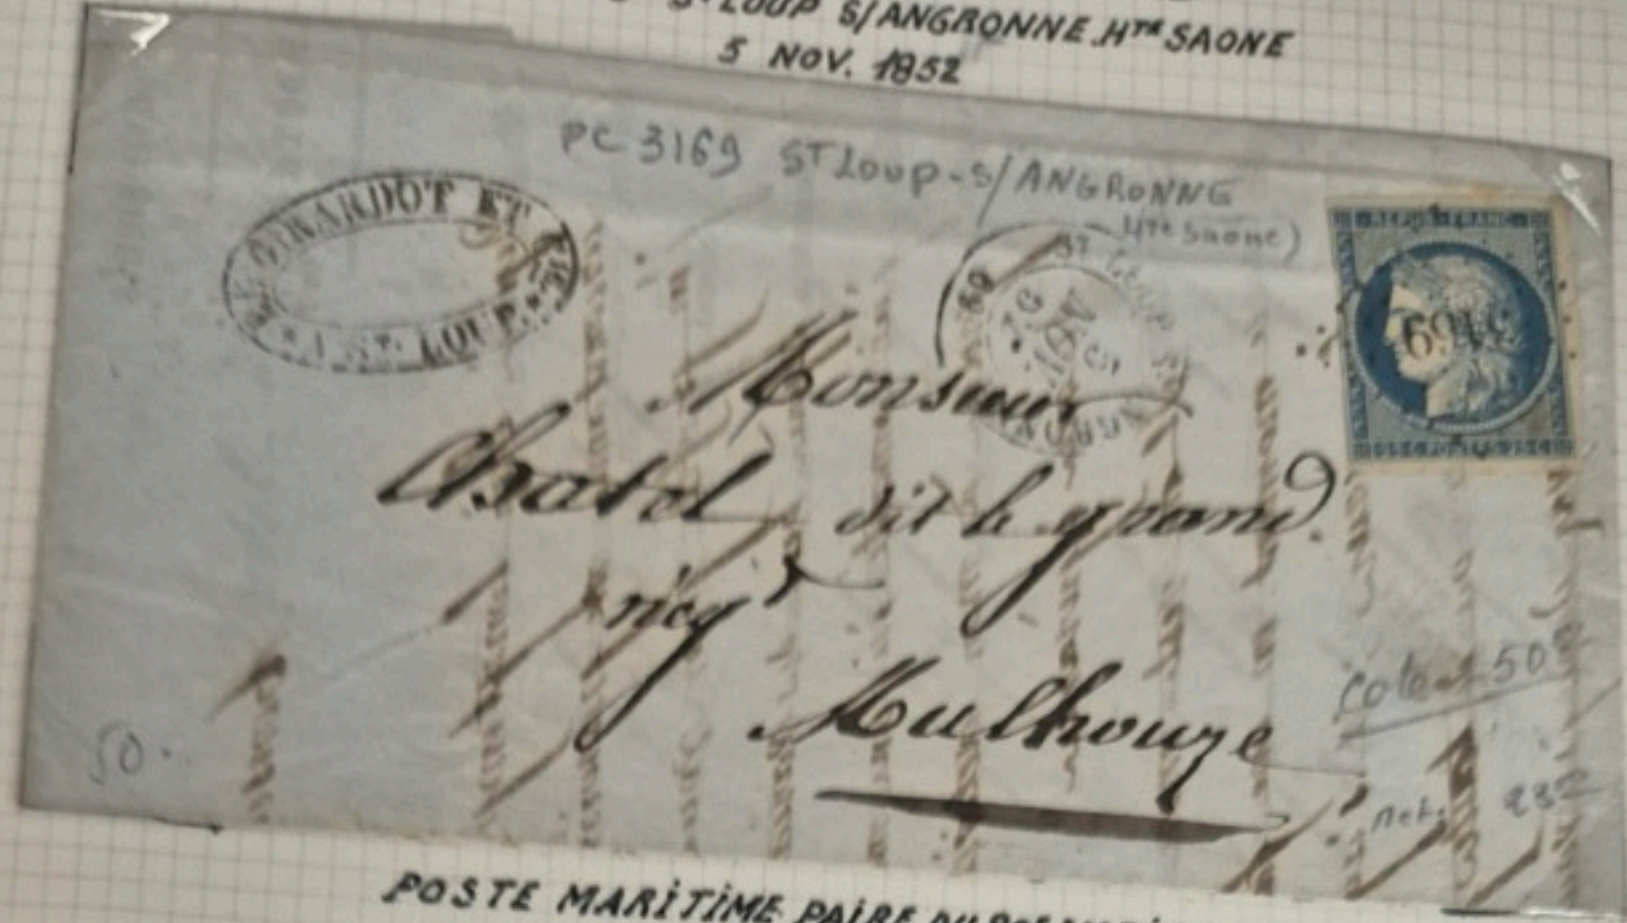 ST LOUP S/ANGRONNE.HTE SAONE
5 NOV. 1852
PC 3169 ST Loup-s/ANGRONNE
Hte Saone)
GIRARDOT ET CIE
A ST. LOUP.
ST LOUP S ANGRONNE
69
5
NOV
52
REPUB FRANC
3169
Monsieur
Chatel dit le grand
négt
Mulhouze
cote 50
50.
net.
POSTE MARITIME PAIRE DU